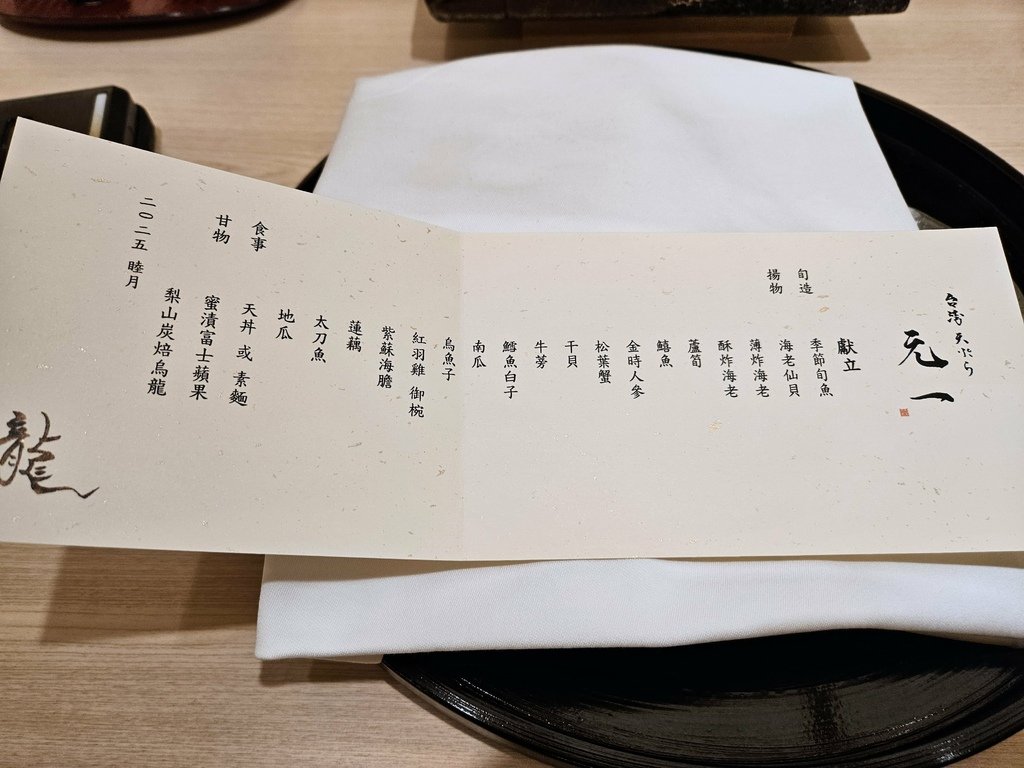 台湾 天ぷら
元一
獻立
旬造
季節旬魚
海老仙貝
揚物
薄炸海老
酥炸海老
蘆筍
鱚魚
金時人參
松葉蟹
干貝
牛蒡
鱈魚白子
南瓜
烏魚子
紅羽雞 御椀
紫蘇海膽
蓮藕
太刀魚
地瓜
食事
天丼 或 素麵
甘物
蜜漬富士蘋果
梨山炭焙烏龍
二〇二五 睦月
龍